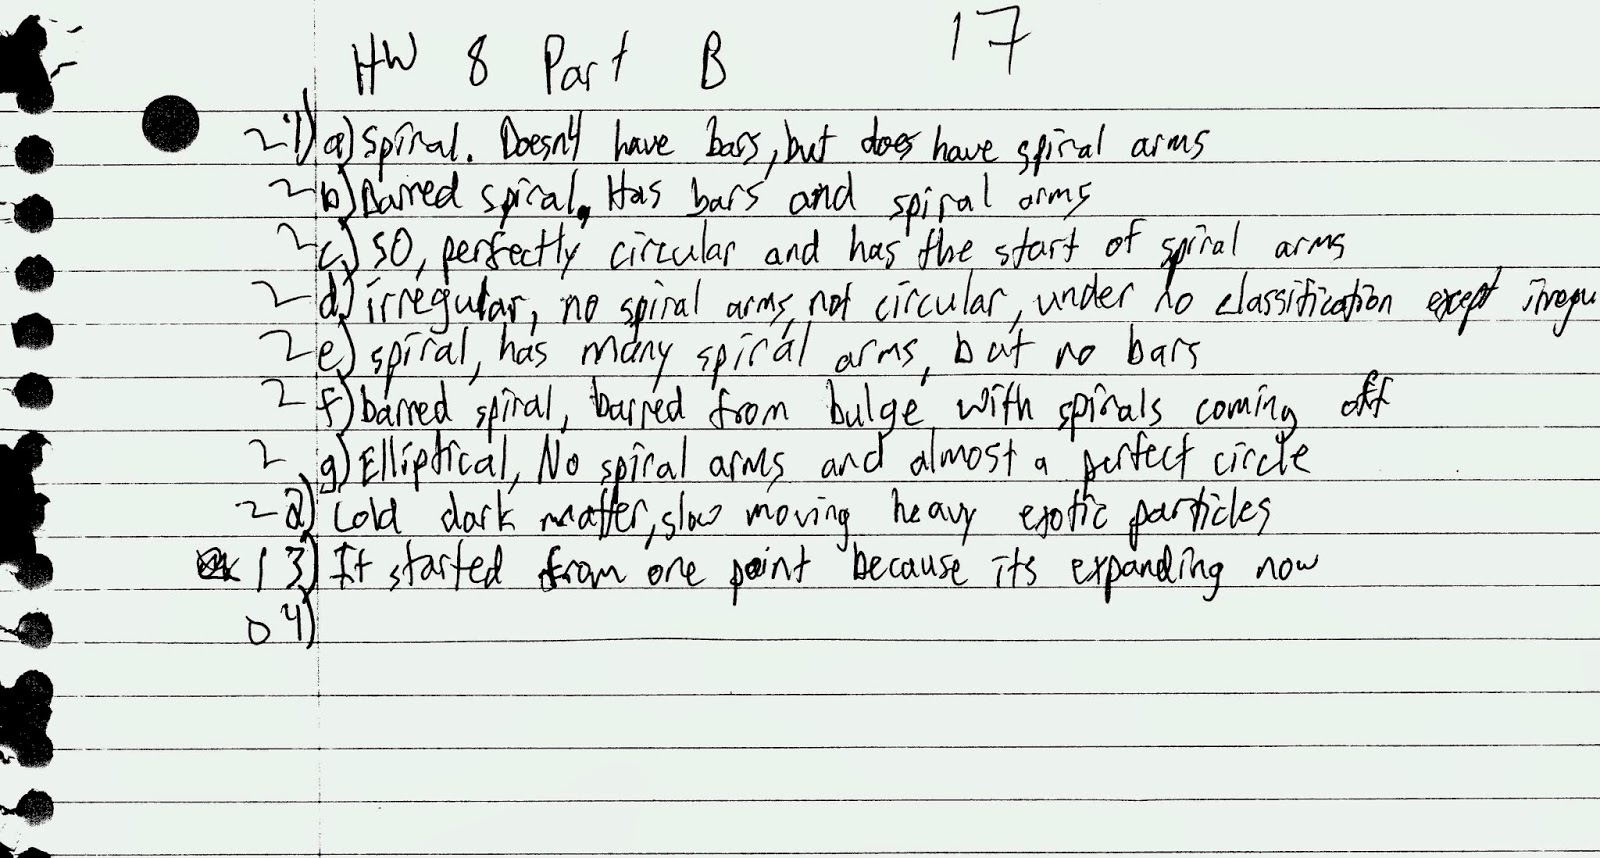 HW 8 Part B 17
2 1) a) Spiral. Doesn't have bars, but does have spiral arms
2 b) Barred spiral, Has bars and spiral arms
2 c) S0, perfectly circular and has the start of spiral arms
2 d) irregular, no spiral arms, not circular, under no classification except irregu
2 e) spiral, has many spiral arms, but no bars
2 f) barred spiral, barred from bulge with spirals coming off
2 g) Elliptical, No spiral arms and almost a perfect circle
2 2) Cold dark matter, slow moving heavy exotic particles
1 3) It started from one point because its expanding now
0 4)